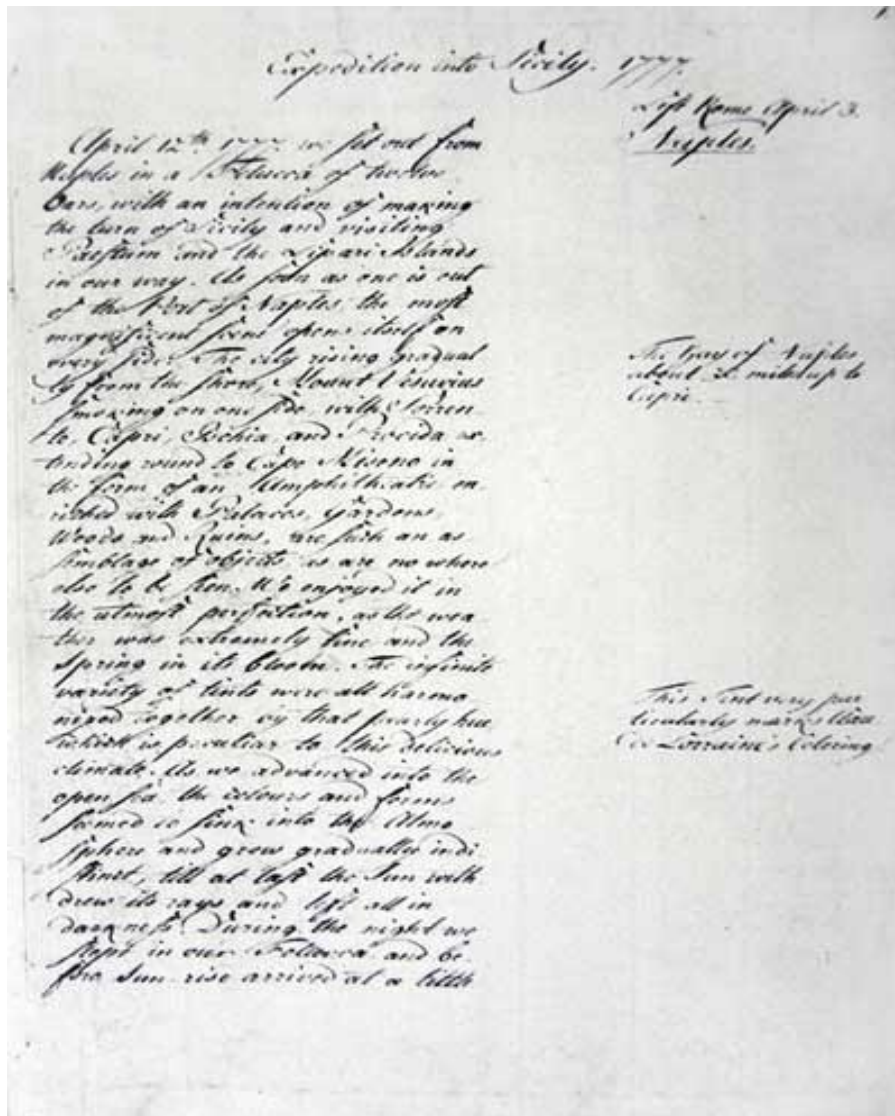 Expedition into Sicily. 1777.
Left Rome April 3.
Naples.
April 12th 1777. we sit out from
Naples in a Felucca of twelve
Oars, with an intention of making
the turn of Sicily and visiting
Paestum and the Lipari Islands
in our way. As soon as one is out
of the Port of Naples, the most
magnificent scene opens itself on
every side. The city rising gradual
ly from the shore, Mount Vesuvius
smoking on one side, with Sorren-
to, Capri, Ischia, and Procida ex-
tending round to Cape Miseno in
the form of an Amphitheatre en-
riched with Palaces, gardens,
Woods and Ruins, are such an as
semblage of objects as are no where
else to be seen. We enjoyed it in
the utmost perfection, as the wea
ther was extremely fine and the
Spring in its bloom. The infinite
variety of tints were all harmo
nized together by that pearly hue
which is peculiar to this delicious
climate. As we advanced into the
open sea, the colours and forms
seemed to sink into the Atmo
sphere and grew gradually indi
stinct, till at last the Sun with
drew its rays and left all in
darkness. During the night we
slept in our Felucca and be-
fore Sun-rise arrived at a little
The bay of Naples
about miles up to
Capri.
This Tint very par
ticularly marks Clau
de Lorraine's Coloring